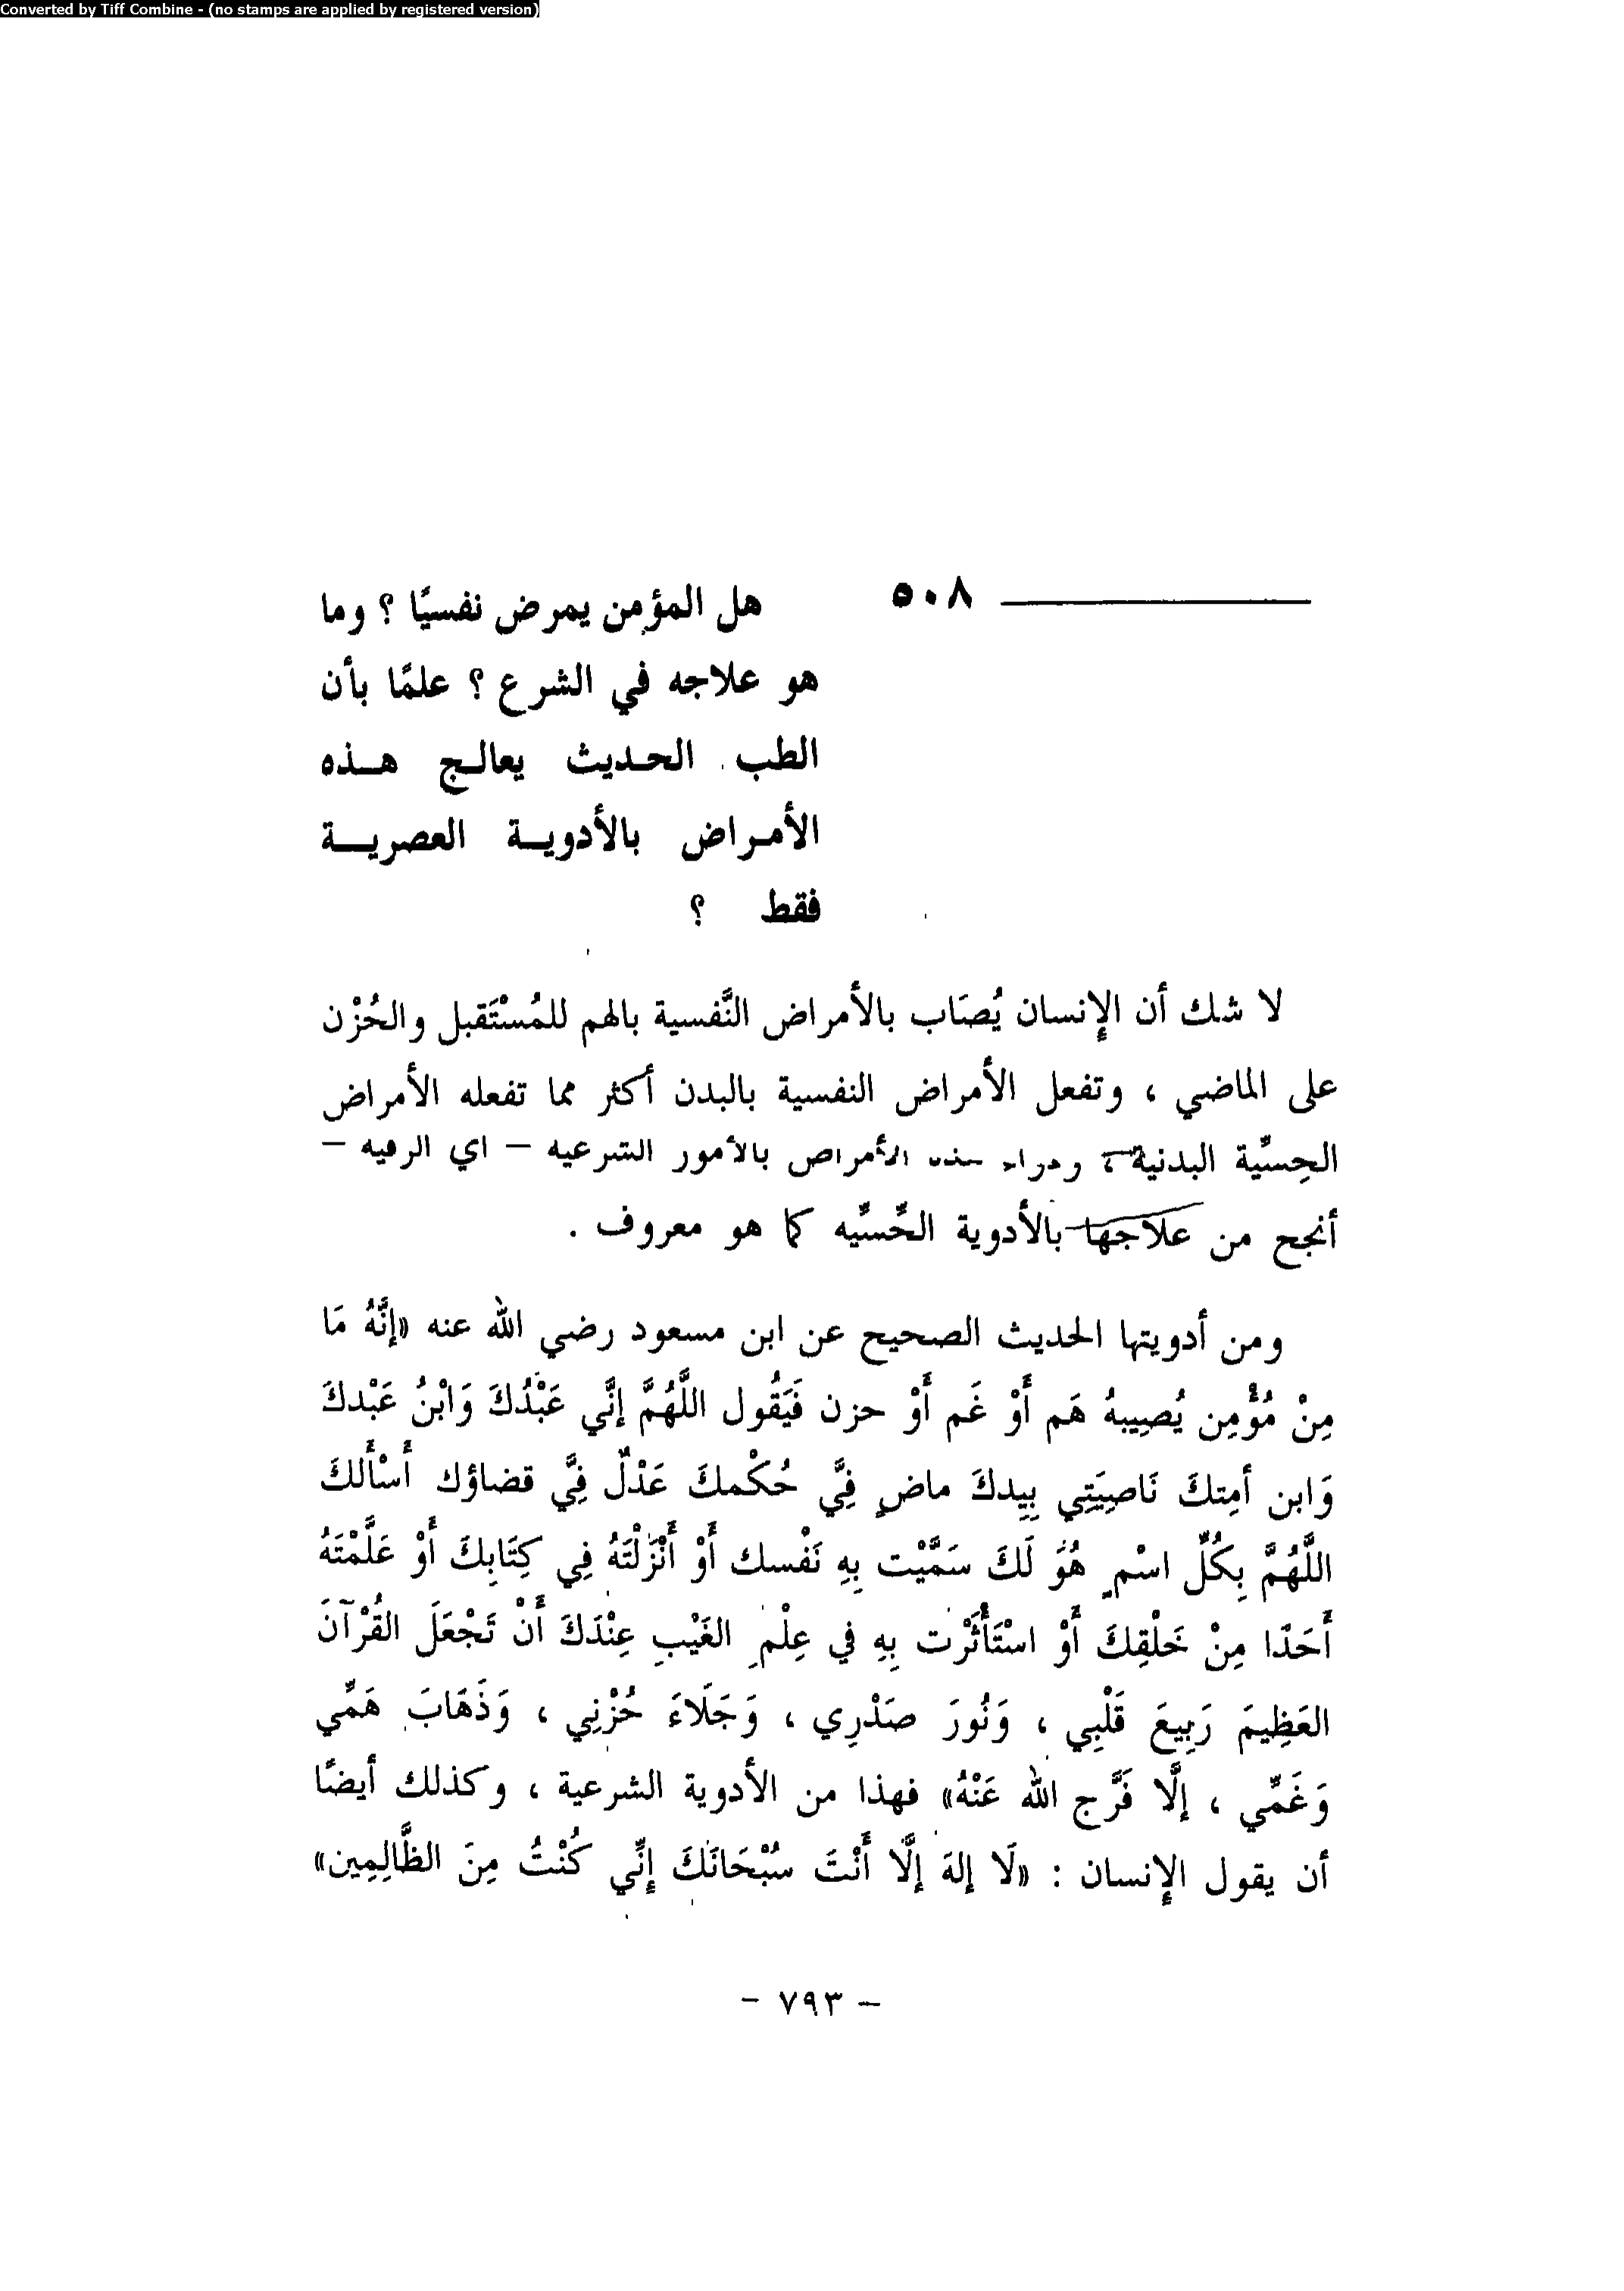 Converted by Tiff Combine - (no stamps are applied by registered version)
٥٠٨ هل المؤمن يمرض نفسيًا ؟ وما
هو علاجه في الشرع ؟ علمًا بأن
الطب الحديث يعالج هذه
الأمراض بالأدوية العصرية
فقط ؟
لا شك أن الإنسان يُصَاب بالأمراض النَّفسية بالهم للمُسْتَقبل والحُزْن
على الماضي ، وتفعل الأمراض النفسية بالبدن أكثر مما تفعله الأمراض
الحِسِّية البدنية ، الأمراض بالأمور الشرعيه – اي الرقيه –
أنجح من علاجها بالأدوية الحِّسيِّه كما هو معروف .
ومن أدويتها الحديث الصحيح عن ابن مسعود رضي الله عنه «إنَّهُ مَا
مِنْ مُؤْمِن يُصِيبهُ هَم أَوْ غَم أَوْ حزن فَيَقُول اللَّهُمَّ إنَّي عَبْدُكَ وَابْنُ عَبْدكَ
وَابن أمِتكَ نَاصِيَتِي بِيِدكَ ماضٍ فِيَّ حُكْمكَ عَدْلٌ فِيَّ قضاؤك أَسْأَلكَ
اللَّهُمَّ بِكُلِّ اسْمٍ هُوَ لَكَ سَمَّيْت بِهِ نَفْسك أَوْ أَنْزَلْتَهُ فِي كِتَابِكَ أَوْ عَلَّمْتَهُ
أَحَدًا مِنْ خَلْقِكَ أَوْ اسْتَأْثَرْت بِهِ في عِلْمِ الغَيْبِ عِنْدَكَ أَنْ تَجْعَلَ القُرْآنَ
العَظِيمَ رَبِيعَ قَلْبِي ، وَنُورَ صَدْرِي ، وَجَلَاءَ حُزْنِي ، وَذَهَابَ هَمِّي
وَغَمِّي ، إلَّا فَرَّج الله عَنْهُ» فهذا من الأدوية الشرعية ، وكذلك أيضًا
أن يقول الإنسان : «لَا إلهَ إلَّا أَنْتَ سُبْحَانَكَ إنِّي كُنْتُ مِنَ الظَّالِمِين»
– ٧٩٣ –